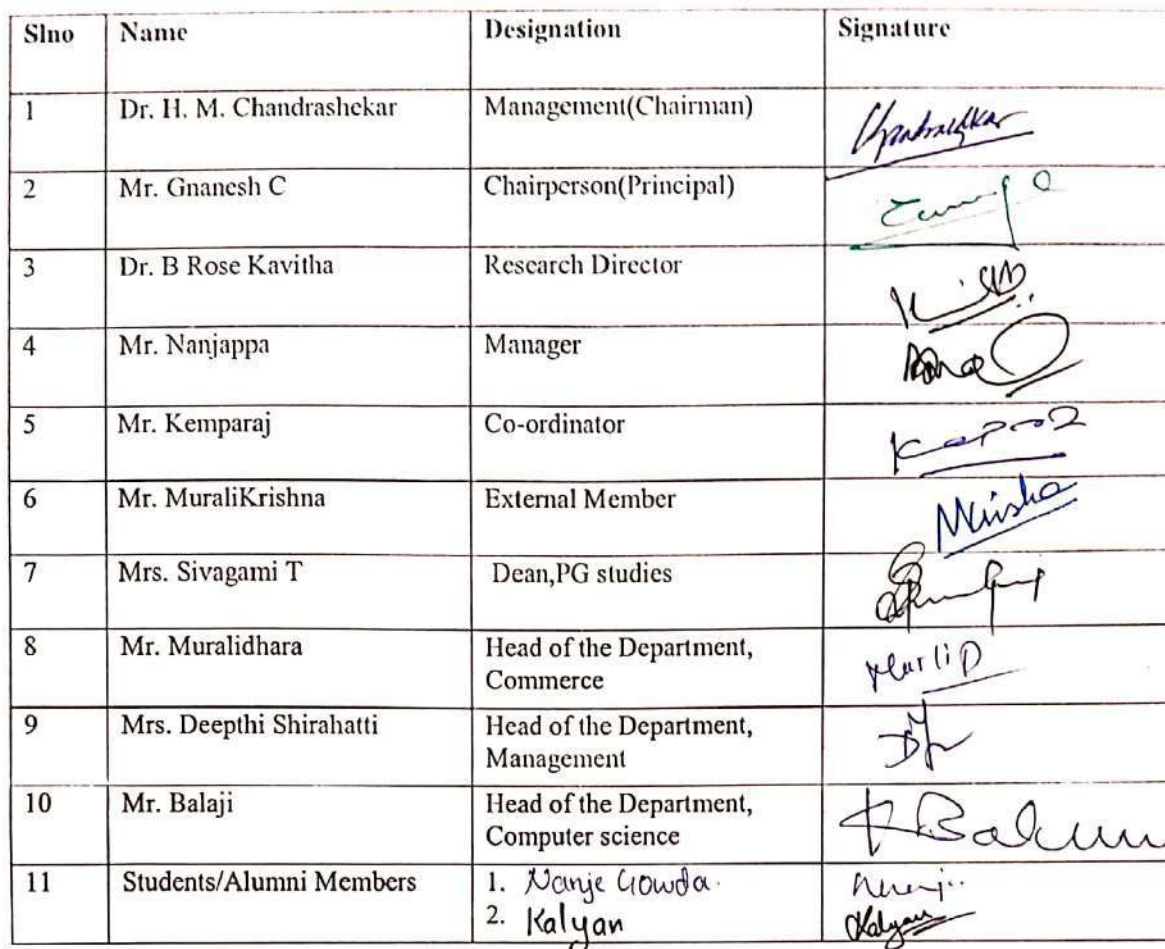 Slno Name Designation Signature
1 Dr. H. M. Chandrashekar Management(Chairman)
2 Mr. Gnanesh C Chairperson(Principal)
3 Dr. B Rose Kavitha Research Director
4 Mr. Nanjappa Manager
5 Mr. Kemparaj Co-ordinator
6 Mr. MuraliKrishna External Member
7 Mrs. Sivagami T Dean,PG studies
8 Mr. Muralidhara Head of the Department,
Commerce
Murli D
9 Mrs. Deepthi Shirahatti Head of the Department,
Management
10 Mr. Balaji Head of the Department,
Computer science
11 Students/Alumni Members 1. Nanje Gowda.
2. Kalyan Kalyan